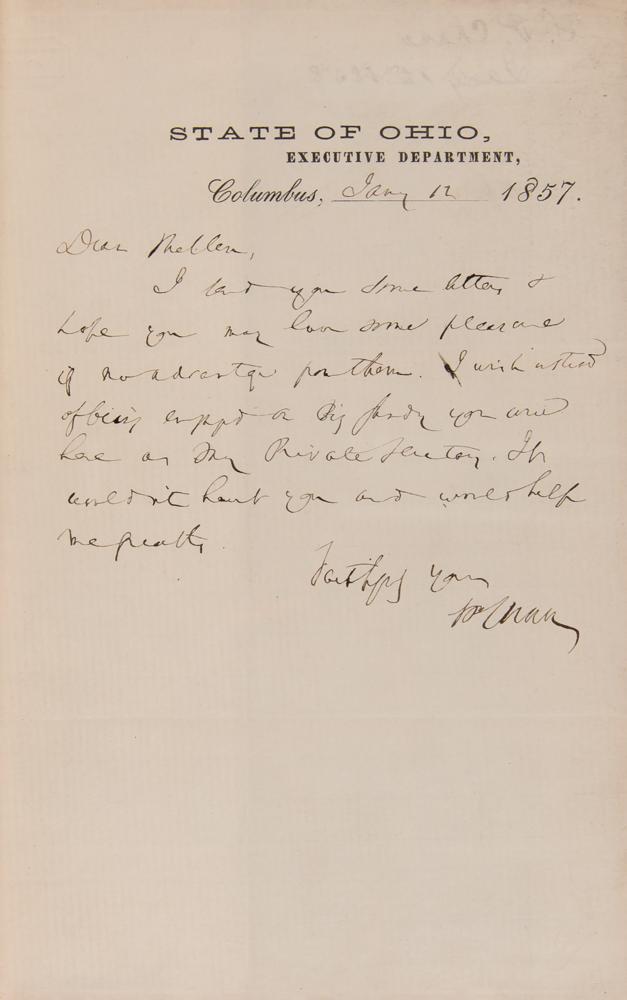 STATE OF OHIO,
EXECUTIVE DEPARTMENT,
Columbus, Jany 12 1857.
Dear Mellen,
I send you some letters &
hope you may have some pleasure
if no advantage from them. I wish instead
of being engaged on Big Sandy you were
here as my Private Secretary. It
wouldn't hurt you and would help
me greatly.
Faithfully yours
SPChase